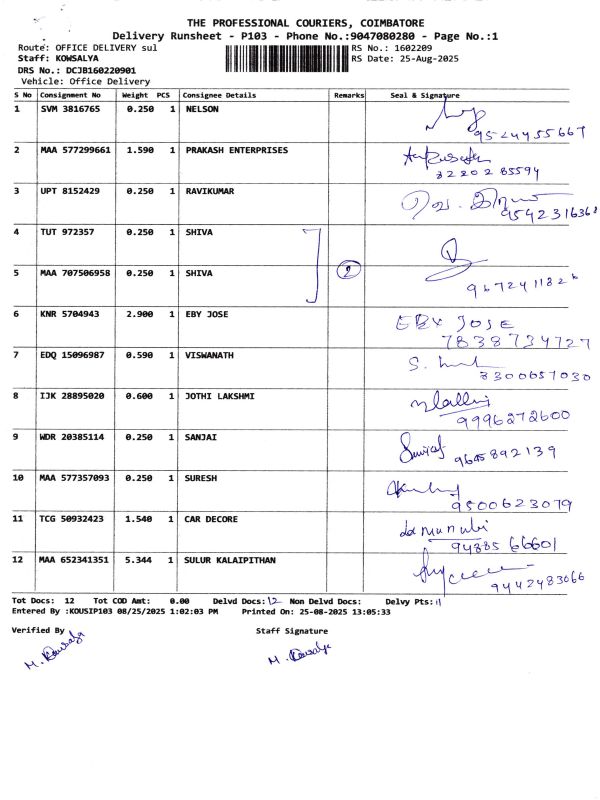 THE PROFESSIONAL COURIERS, COIMBATORE
Delivery Runsheet - P103 - Phone No.:9047080280 - Page No.:1
Route: OFFICE DELIVERY sul RS No.: 1602209
Staff: KOWSALYA RS Date: 25-Aug-2025
DRS No.: DCJB160220901
Vehicle: Office Delivery
S No Consignment No Weight PCS Consignee Details Remarks Seal & Signature
1 SVM 3816765 0.250 1 NELSON
9524455667
2 MAA 577299661 1.590 1 PRAKASH ENTERPRISES
3220285594
3 UPT 8152429 0.250 1 RAVIKUMAR
9542316368
4 TUT 972357 0.250 1 SHIVA
5 MAA 707506958 0.250 1 SHIVA 2
9672411826
6 KNR 5704943 2.900 1 EBY JOSE EBY JOSE
7838734727
7 EDQ 15096987 0.590 1 VISWANATH
8300657030
8 IJK 28895020 0.600 1 JOTHI LAKSHMI
9996272600
9 WDR 20385114 0.250 1 SANJAI
9645892139
10 MAA 577357093 0.250 1 SURESH
9500623079
11 TCG 50932423 1.540 1 CAR DECORE
94885 66601
12 MAA 652341351 5.344 1 SULUR KALAIPITHAN
9442483066
Tot Docs: 12 Tot COD Amt: 0.00 Delvd Docs: 12 Non Delvd Docs: Delvy Pts: 11
Entered By :KOUSIP103 08/25/2025 1:02:03 PM Printed On: 25-08-2025 13:05:33
Verified By Staff Signature
M. Kowsalya M. Kowsalya